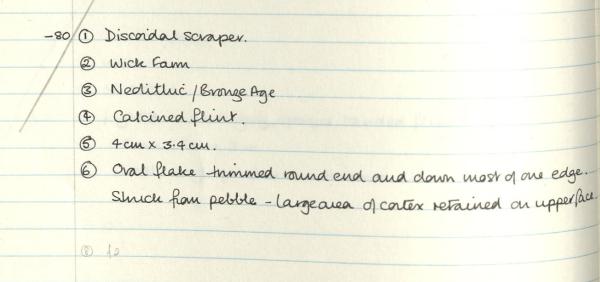 -80 ① Discoidal scraper.
② Wick Farm
③ Neolithic / Bronze Age
④ Calcined flint.
⑤ 4cm x 3.4cm.
⑥ Oval flake trimmed round end and down most of one edge.
Struck from pebble - large area of cortex retained on upper face.